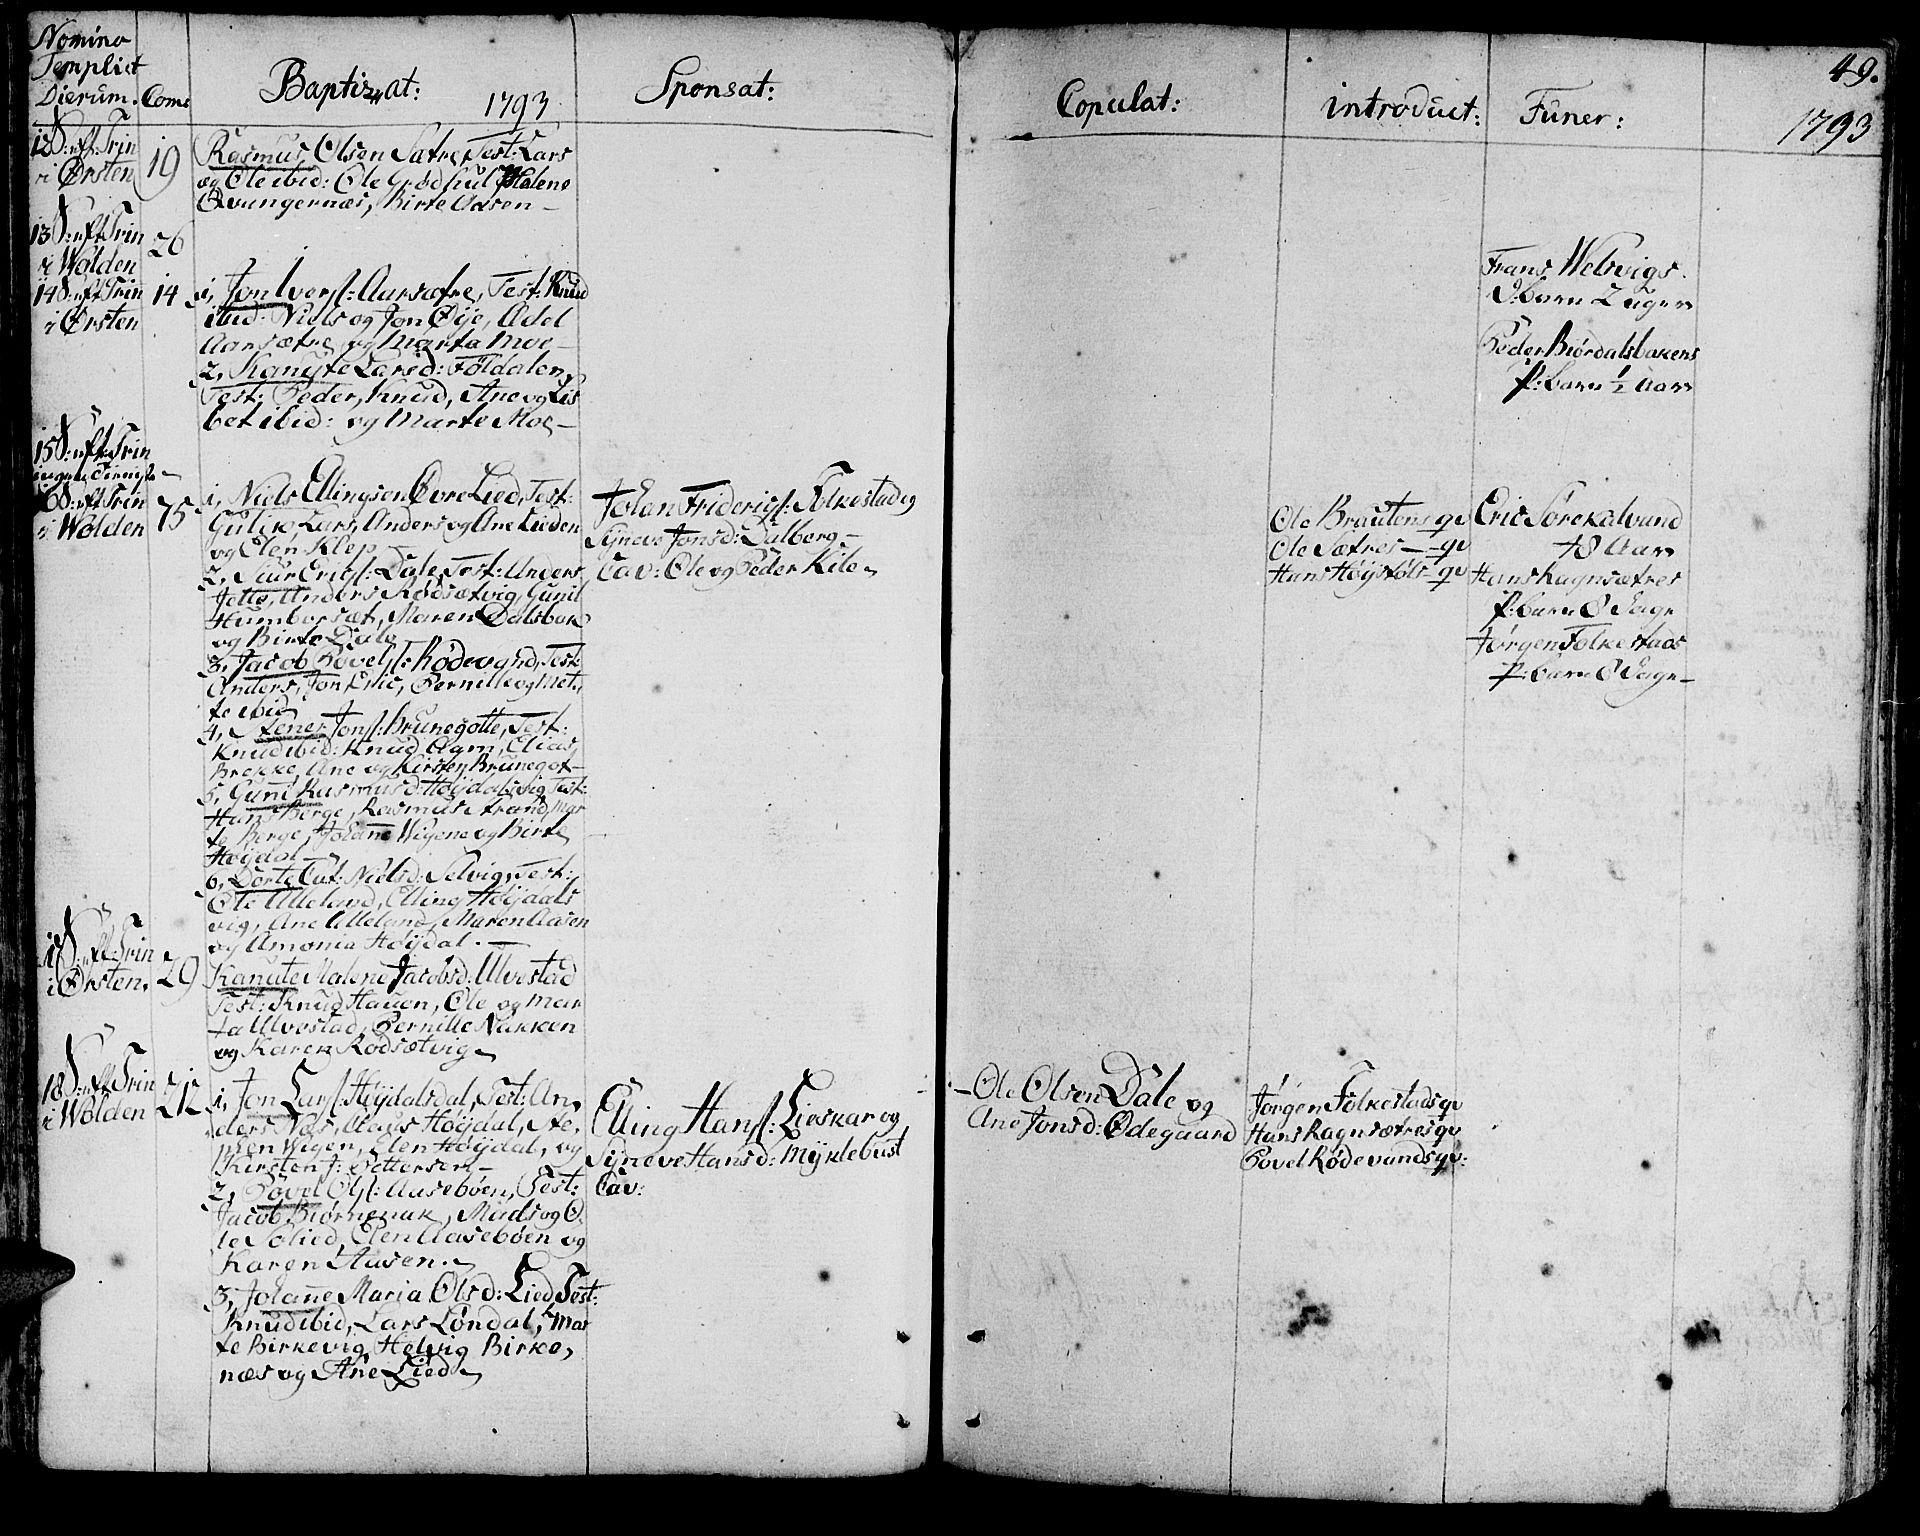 Nomina
Templi et
Dierum.
Com:
Baptizat:
1793
Sponsat:
Copulat:
introduct:
Funer:
49.
1793
12 S: eft: Trin
i Ørsten
19
Rasmus Olsen Sætre, Test: Lars
og Ole ibid: Ole Grødhul, Malene
Qvangernæs, Birte Aasen
13 S: eft Trin
i Wolden
26
Frans Welsvigs
barn 2 uger
14 S: eft Trin
i Ørsten
14
1, Jon Ivers: Aarsætre, Test: Knud
ibid: Niels og Jon Øije, Adel
Aarsætre og Marta Moe
2, Kanute Larsd: Føldalen,
Test: Peder, Knud, Ane og Lis
bet ibid: og Marte Moe
Peder Biørdalsbakens
p: barn 1/2 Aar
15 S: eft: Trin
ingen Tieniste
16 S: eft Trin
i Wolden
75
1, Niels Ellingsen Øvre Lied, Test:
Gulik, Lars, Anders og Ane Lieden
og Elen Klep
2, Siur Erics: Dale, Test: Anders
Jetto, Anders Rødsætvig, Gunil
Humborsæt, Maren Dalsbak
og Birte Dale
3, Jacob Povels: Rødevand, Test:
Anders, Jon, Eric, Pernille og Met,
te ibid
4, Stener Jons: Brunegotte, Test:
Knud ibid: Knud Agm, Elias
Brekke, Ane og Kirsten Brunegot
5, Guni Rasmusd: Høijdalsvig, Test:
Hans Berge, Rasmus Strand, Mar
te Berge, Johane Wigene og Birte
Høijdal
6, Dorte Cat: Nielsd: Selvig, Test:
Ole Ulleland, Elling Høijdals
vig, Ane Ulleland, Maren Aasen
og Amonia Høijdal.
Johan Friderigs: Folkestad og
Syneve Jonsd: Dalberg
Cav: Ole og Peder Kile
Ole Brautens qv
Ole Sætres qv
Hans Høystøls qv
Eric Sørekalvand
78 Aar
Hans Ragnsætres
p: barn 8 Dage
Jørgen Folkestads
p: barn 8 Dage
17 S: eft: Trin
i Ørsten.
29
Kanute Malene Jacobsd: Ulvestad
Test: Knud Hauen, Ole og Mar
ta Ulvestad, Pernille Nakken
og Karen Rødsætvig
18 S: eft Trin
i Wolden
212
1, Jon Lars: Høijdalsdal, Test: An,
ders Næs, Claus Høijdal, Ste,
phen Wigen, Elen Høijdal, og
Kirsten J: Pettersen
2, Povel Ols: Aasebøen, Test:
Jacob Biørnenak, Mads og O,
le Solied, Elen Aasebøen og
Karen Aasen.
3, Johane Maria Olsd: Lied Test:
Knud ibid, Lars Løndal, Mar
te Birkevig, Helvig Birke,
næs og Ane Lied
Elling Hans: Lieskar og
Syneve Hansd: Myklebust
Cav:
Ole Olsen Dale og
Ane Jonsd: Ødegaard
Jørgen Folkestads qv
Hans Ragnsætres qv
Povel Rødevands qv: